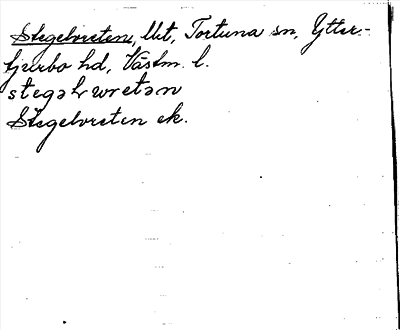 Stegelvreten, llit, Tortuna sn, Ytter-
tjurbo hd, Västm. l.
stegalvwretan
Stegelvreten ek.